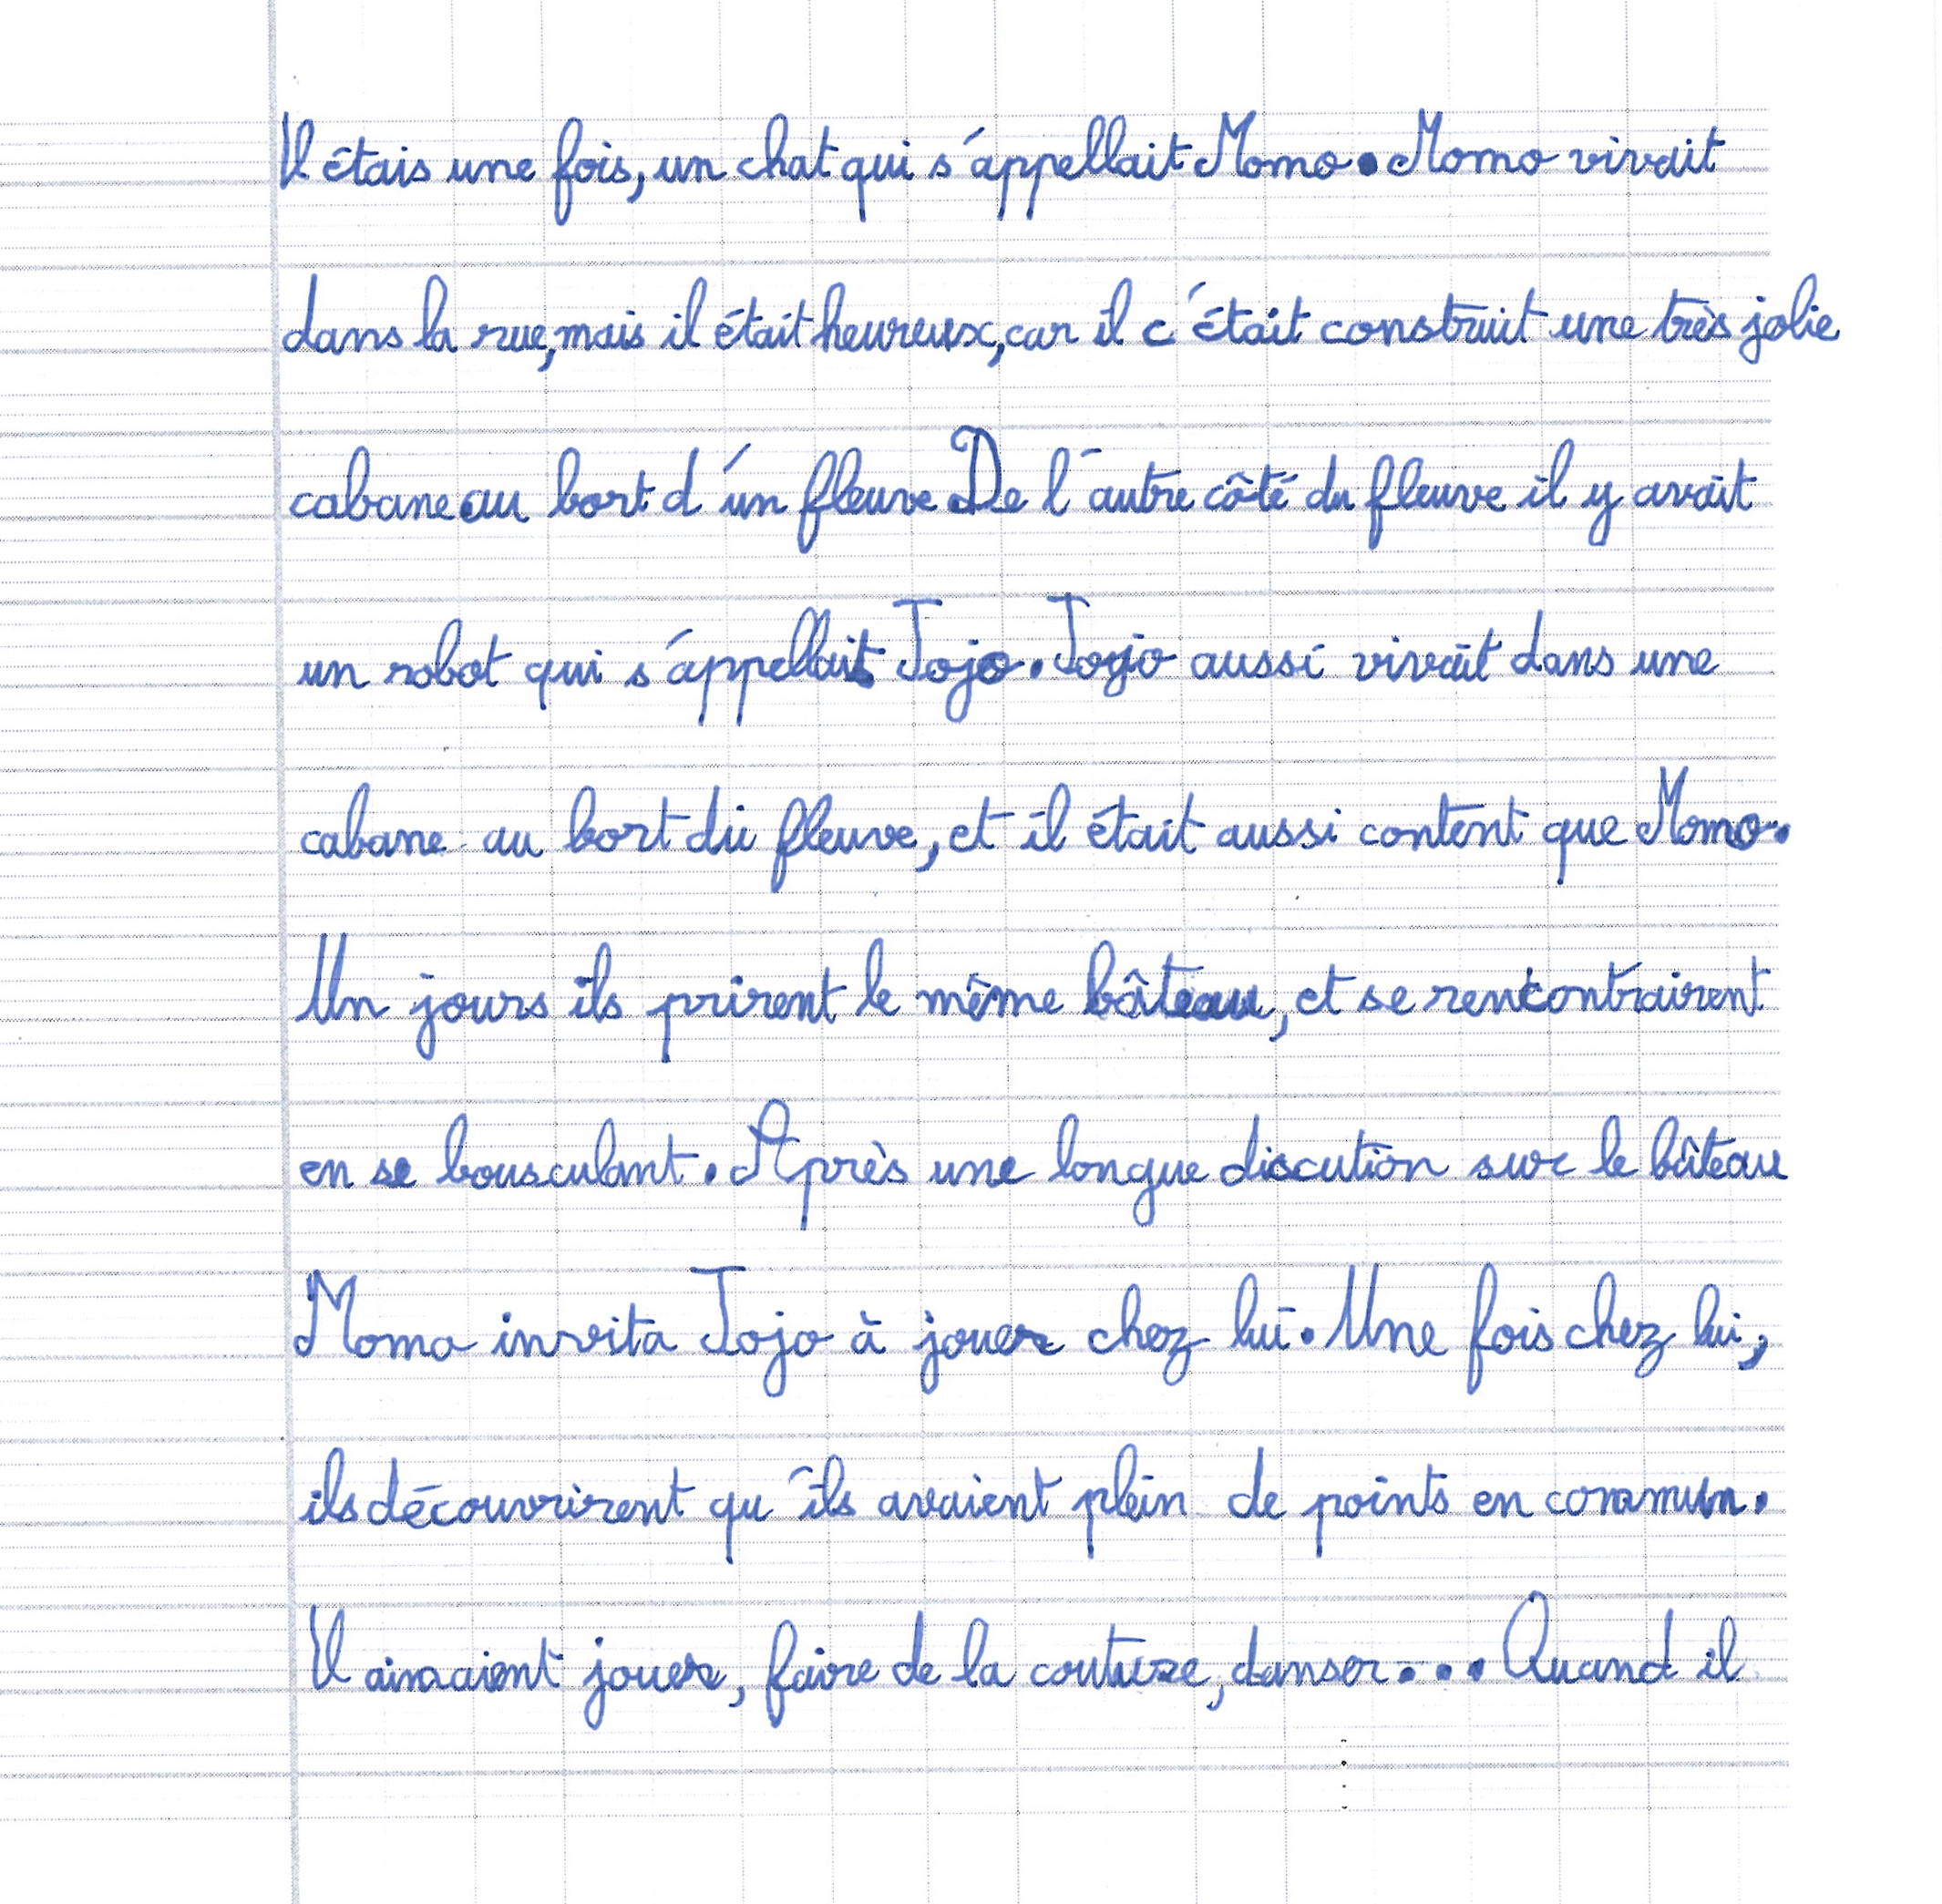 Il étais une fois, un chat qui s'appellait Momo. Momo vivait
dans la rue, mais il était heureux, car il c'était construit une très jolie
cabane au bort d'un fleuve. De l'autre côté du fleuve il y avait
un robot qui s'appellait Jojo. Jojo aussi vivait dans une
cabane au bort du fleuve, et il était aussi content que Momo.
Un jours ils prirent le même bâteau, et se rencontrairent
en se bousculant. Après une longue discution sur le bâteau
Momo invita Jojo à jouer chez lui. Une fois chez lui,
ils découvrirent qu'ils avaient plein de points en commun.
Il aimaient jouer, faire de la couture, danser... Quand il